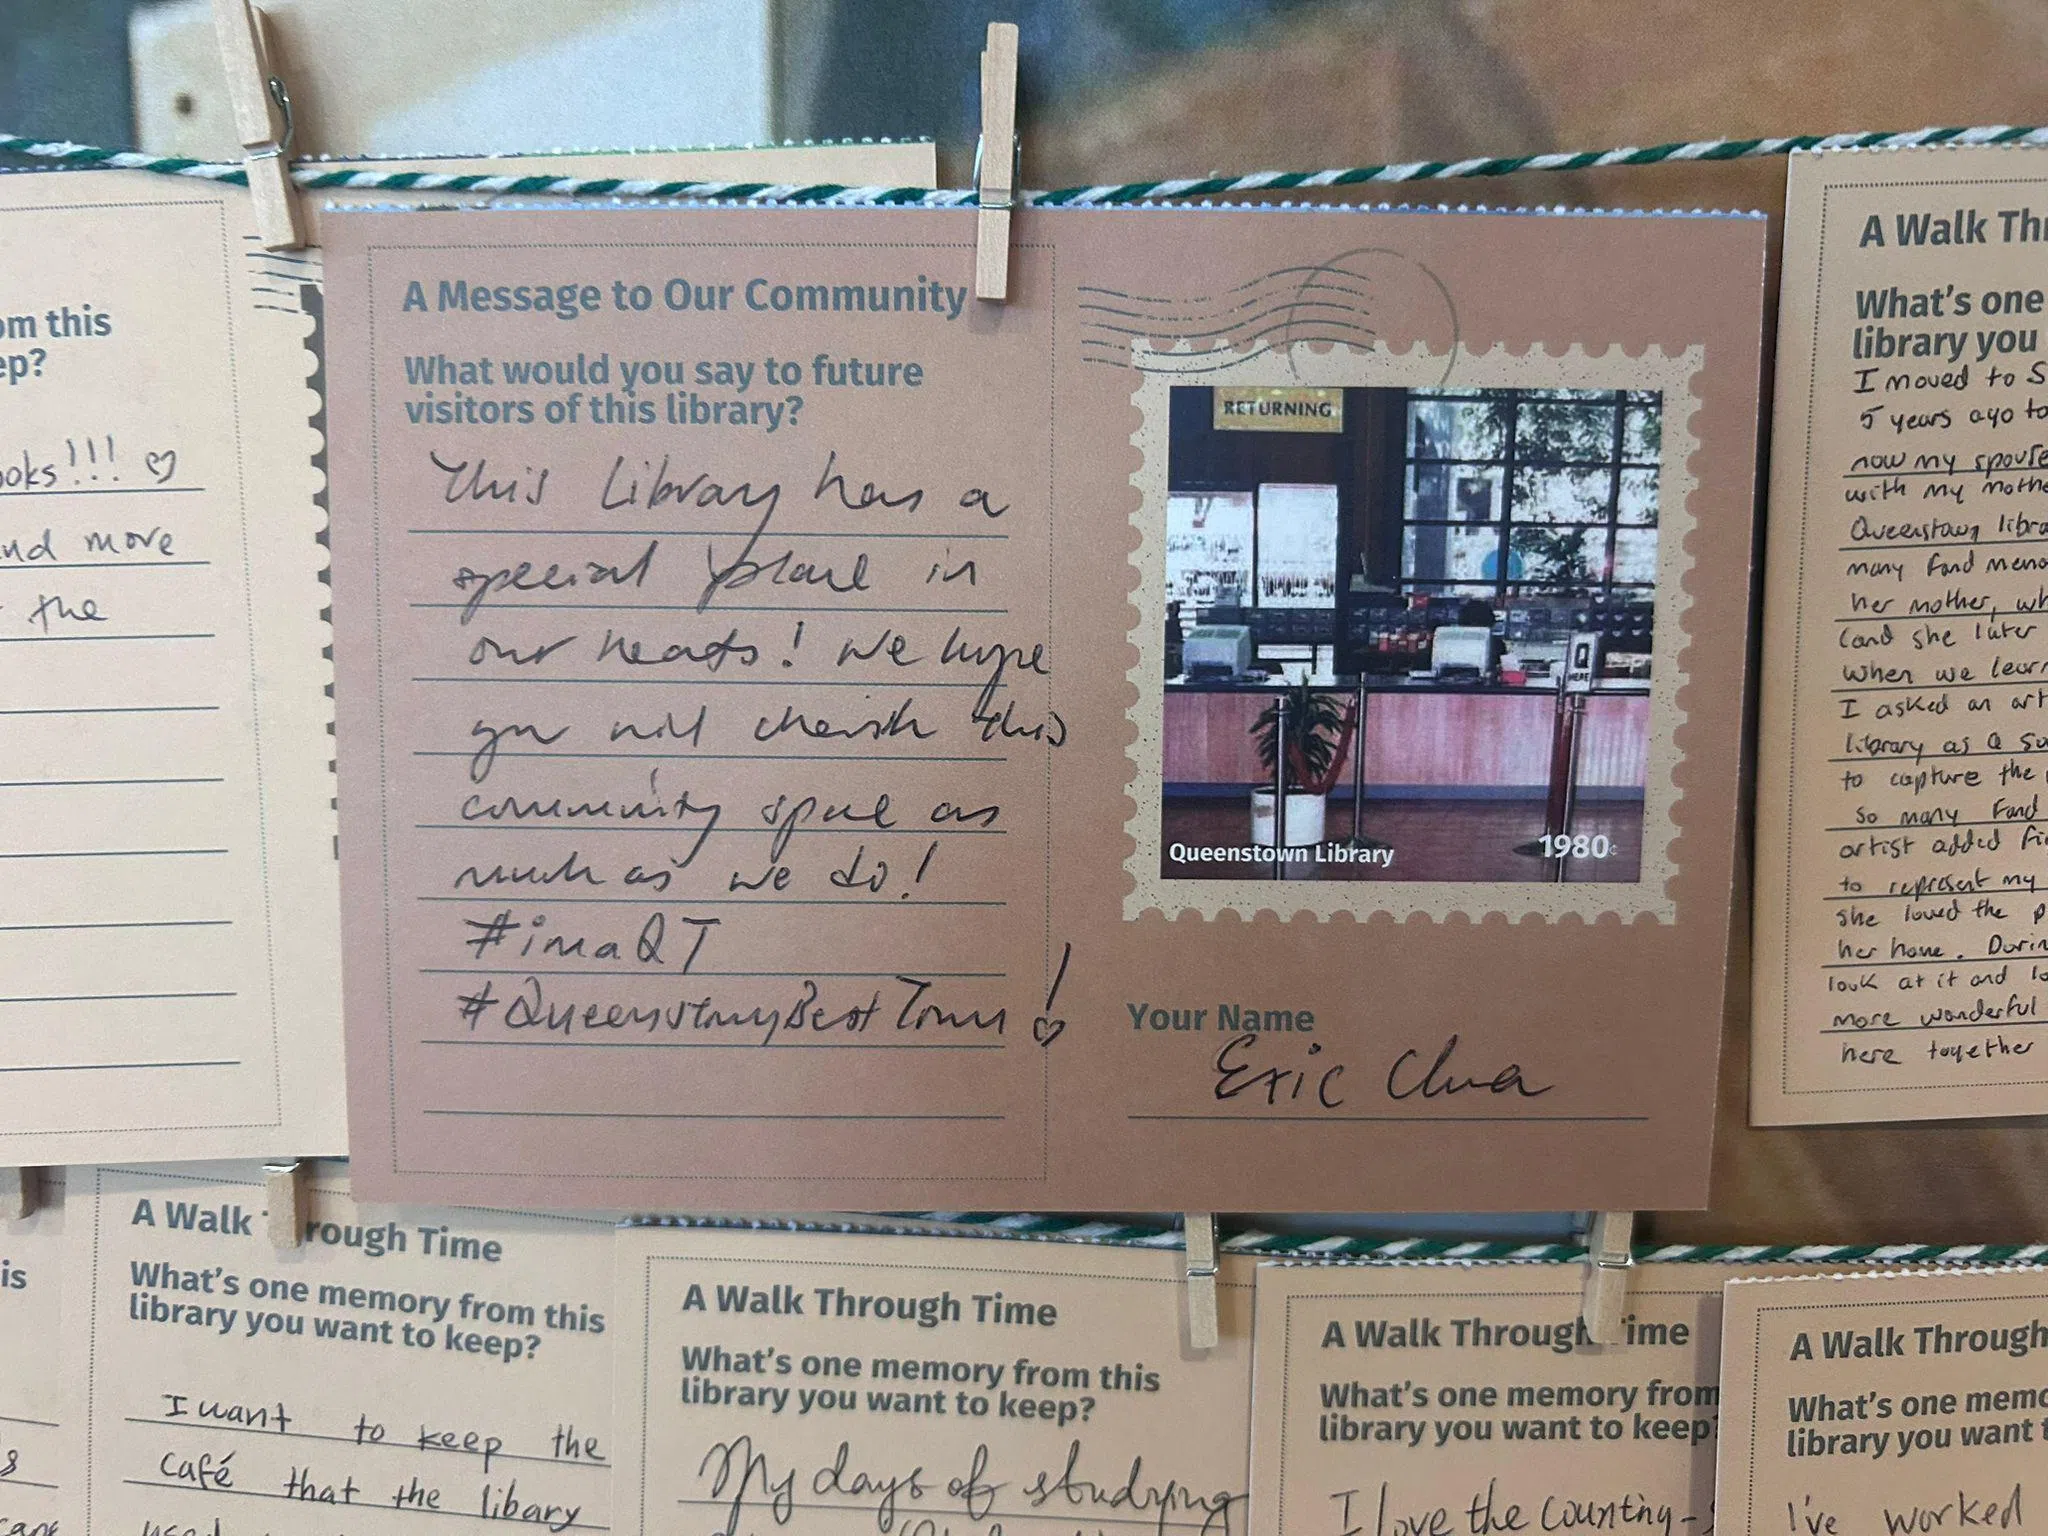 A Message to Our Community
What would you say to future
visitors of this library?
This Library has a
special place in
our hearts! We hope
you will cherish this
community space as
much as we do!
#imaQT
#QueenstownyBestTown!
RETURNING
Q
HERE
Queenstown Library
1980¢
Your Name
Eric Chua
om this
ep?
ooks!!!
and more
the
A Walk Thr
What's one
library you
I moved to S
5 years ago to
now my spouse
with my mothe
Queenstown libra
many fond memo
her mother, wh
(and she later
When we learn
I asked an art
library as a su
to capture the
so many fond
artist added fi
to represent my
she loved the p
her home. Durin
look at it and lo
more wonderful
here together
is
A Walk rough Time
What's one memory from this
library you want to keep?
I want to keep the
café that the libary
used
A Walk Through Time
What's one memory from this
library you want to keep?
My days of studying
A Walk Through ime
What's one memory from
library you want to keep?
I love the counting-s
A Walk Through
What's one memo
library you want t
I've worked